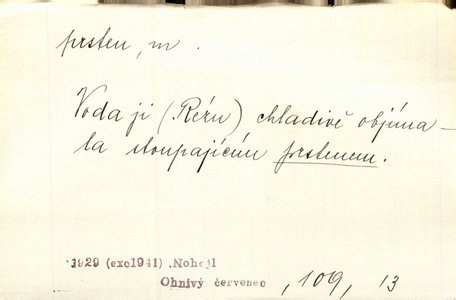 prsten, m.
Voda ji (Rézu) chladivě objíma-
la stoupajícím prstenem.
1929 (exc1941) Nohejl
Ohnivý červenec , 109, 13